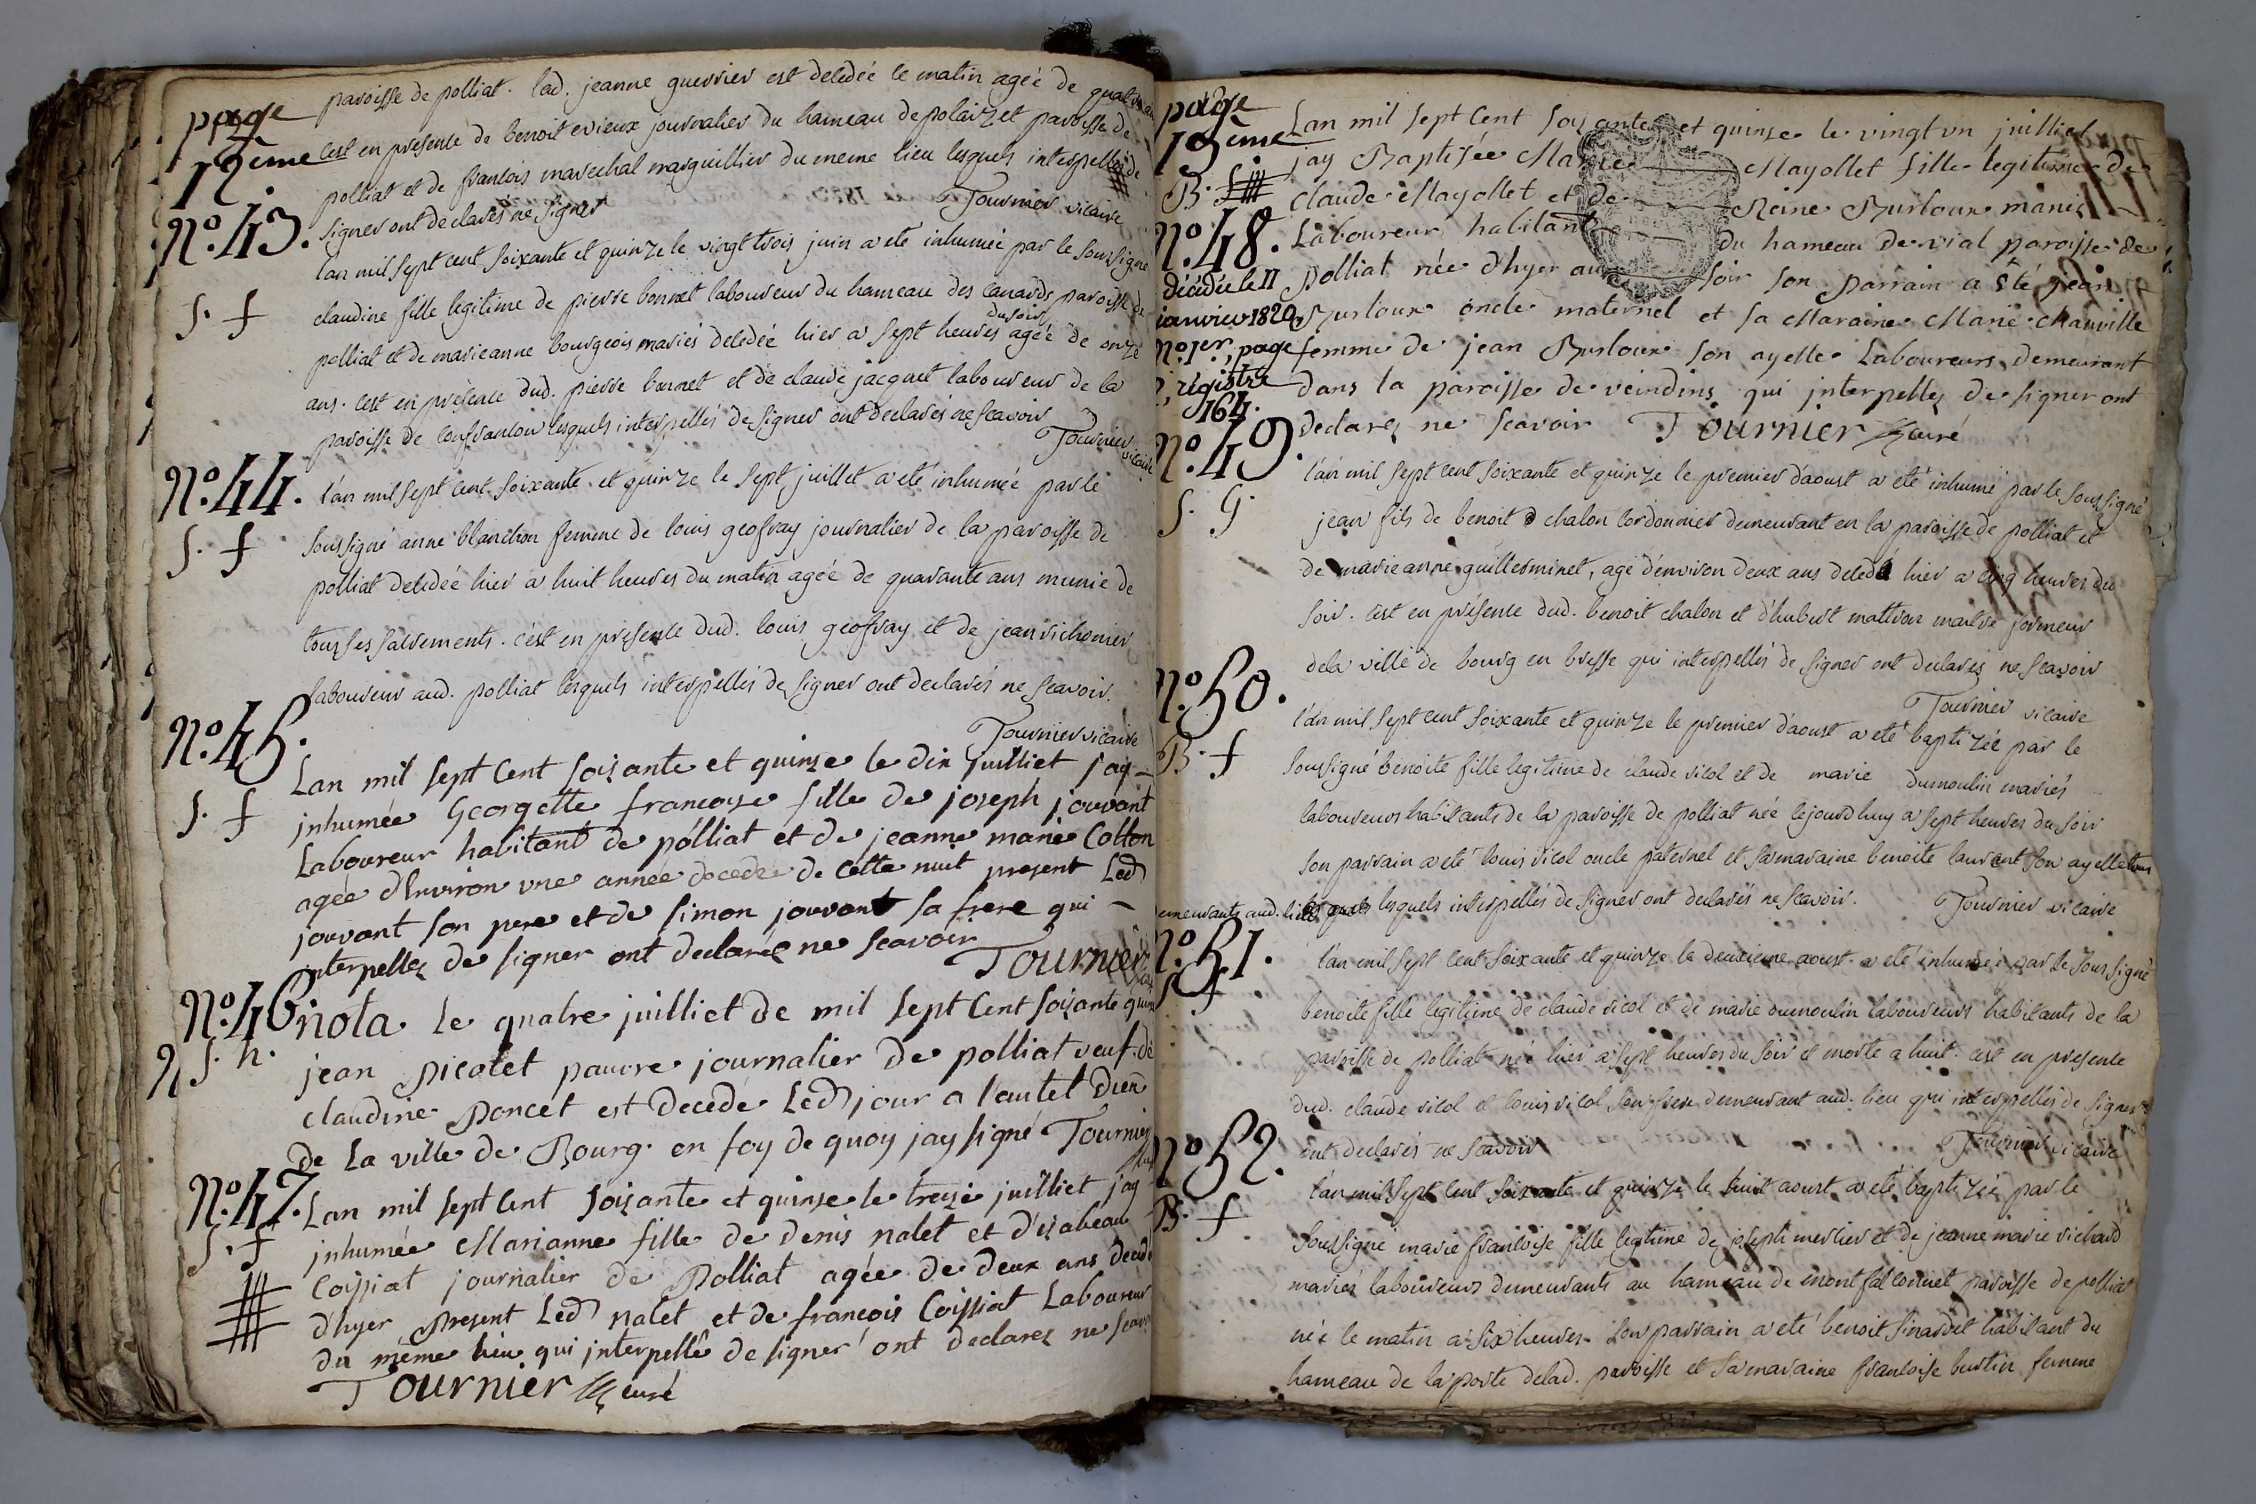 page
12ème
paroisse de polliat. lad. jeanne guerrier est decedée le matin agée de
cest en presence de benoit evieux journalier du hameau de polaizet paroisse de
polliat et de francois marechal marguillier du meme lieu lesquels interpellés de
signer ont declarés ne signer Tournier vicaire
N.o 43.
S. f
l'an mil sept cent soixante et quinze le vingt trois juin a eté inhumée par le soussigné
claudine fille legitime de pierre bonnet laboureur du hameau des canards paroisse de
polliat et de marieanne bourgeois mariés decedée hier a sept heures du soir agée de onze
ans. cest en presence dud. pierre bonnet et de claude jacquet laboureur de la
paroisse de confrancon lesquels interpellés de signer ont declarés ne scavoir
Tournier vicaire
N.o 44.
S. f
l'an mil sept cent soixante et quinze le sept juillet a eté inhumée par le
soussigné anne blanchon femme de louis geofray journalier de la paroisse de
polliat decedée hier a huit heures du matin agée de quarante ans munie de
tous ses sacrements. c'est en presence dud. louis geofray et de jean vichonier
laboureur aud. polliat lesquels interpellés de signer ont declarés ne scavoir.
Tournier vicaire
N.o 45.
S. f
Lan mil sept Cent soixante et quinze le dix juilliet jay
inhumée Georgette francoise fille de joseph jouvont
Laboureur habitant de polliat et de jeanne marie Cotton
agée d'Environ une année decedée de cette nuit present Led
jouvont son pere et de simon jouvont sa frere qui
interpellez de signer ont declarez ne scavoir
Tournier
N.o 46
S. h.
nota Le quatre juilliet de mil sept Cent soixante quinze
jean picotet pauvre journalier de polliat veuf de
claudine Poncet est decedé Led jour a l'autel dieu
de La ville de Bourg en foy de quoy jay signé Tournier
N.o 47.
S. f
Lan mil sept Cent soixante et quinze le treize juilliet jay
inhumée Marianne fille de denis nalet et d'isabeau
Coissiat journalier de Polliat agée de deux ans decedé
d'hyer present Led nalet et de francois Coissiat Laboureur
du même lieu qui interpellé de signer ont declarez ne scavoir
Tournier curé
page
13ème
B. f
N.o 48.
décédée le 11
janvier 1820
n.o 1er, page
régistre
164.
Lan mil sept Cent soixante et quinze le vingt un juilliet
jay Baptisée Marie Mayollet fille legitime de
Claude Mayollet et de Reine Burloux mariez
Laboureur habitant du hameau de vial paroisse de
polliat née d'hyer au soir son parrain a été jean
Burloux oncle maternel et sa Maraine Marie Manville
femme de jean Burloux son ayelle Laboureurs demeurant
dans la paroisse de veindins qui interpellez de signer ont
Declarez ne scavoir Tournier curé
N.o 49.
S. G
l'an mil sept cent soixante et quinze le premier d'aoust a eté inhumé par le soussigné
jean fils de benoit chalon cordonnier demeurant en la paroisse de polliat et
de marieanne guillerminet, agé d'environ deux ans decedé hier a cinq heures du
soir. c'est en présence dud. benoit chalon et d'hubert mattron maitre
dela ville de bourg en bresse qui interpellés de signer ont declarez ne scavoir
Tournier vicaire
N.o 50.
B. f
l'an mil sept cent soixante et quinze le premier d'aoust a eté baptizée par le
soussigné benoite fille legitime de claude vicol et de marie dumoulin mariés
laboureurs habitants de la paroisse de polliat née lejourdhuy a sept heures du soir
son parrain a eté louis vicol oncle paternel et sa maraine benoite laurent son ayelle tous
demeurants aud. lieu lesquels interpellés de signer ont declarés ne scavoir. Tournier vicaire
N.o 51.
S f
l'an mil sept cent soixante et quinze le deuxieme aoust a eté inhumée par le soussigné
benoite fille legitime de claude vicol et de marie dumoulin laboureurs habitants de la
paroisse de polliat née hier a sept heures du soir et morte a huit. cest en presence
dud. claude vicol et louis vicol son frere demeurant aud. lieu qui interpellés de signer
ont declarés ne scavoir Tournier vicaire
N.o 52.
B. f
l'an mil sept cent soixante et quinze le huit aoust a eté baptizée par le
soussigné marie francoise fille legitime de joseph mercier et de jeanne marie vichard
mariés laboureurs demeurants au hameau de montfalconnet paroisse de polliat
née le matin a six heures. son parrain a eté benoit sinardet habitant du
hameau de la poste delad. paroisse et sa maraine francoise burtin femme